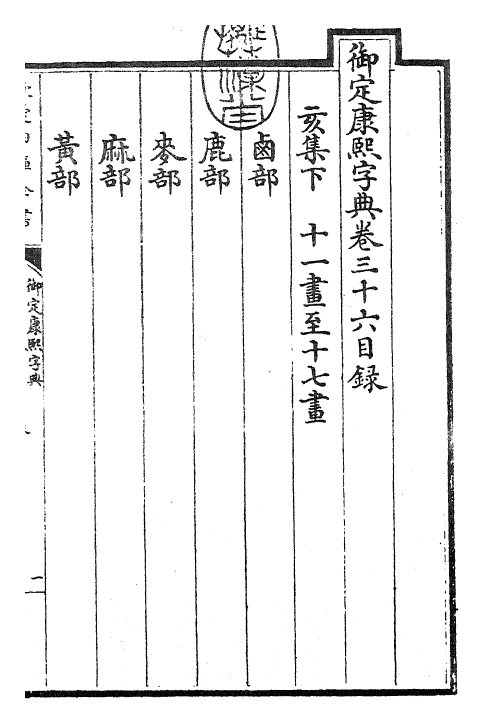 御定康熙字典卷三十六目録
亥集下 十一畫至十七畫
鹵部
鹿部
麥部
麻部
黃部
御定康熙字典
二